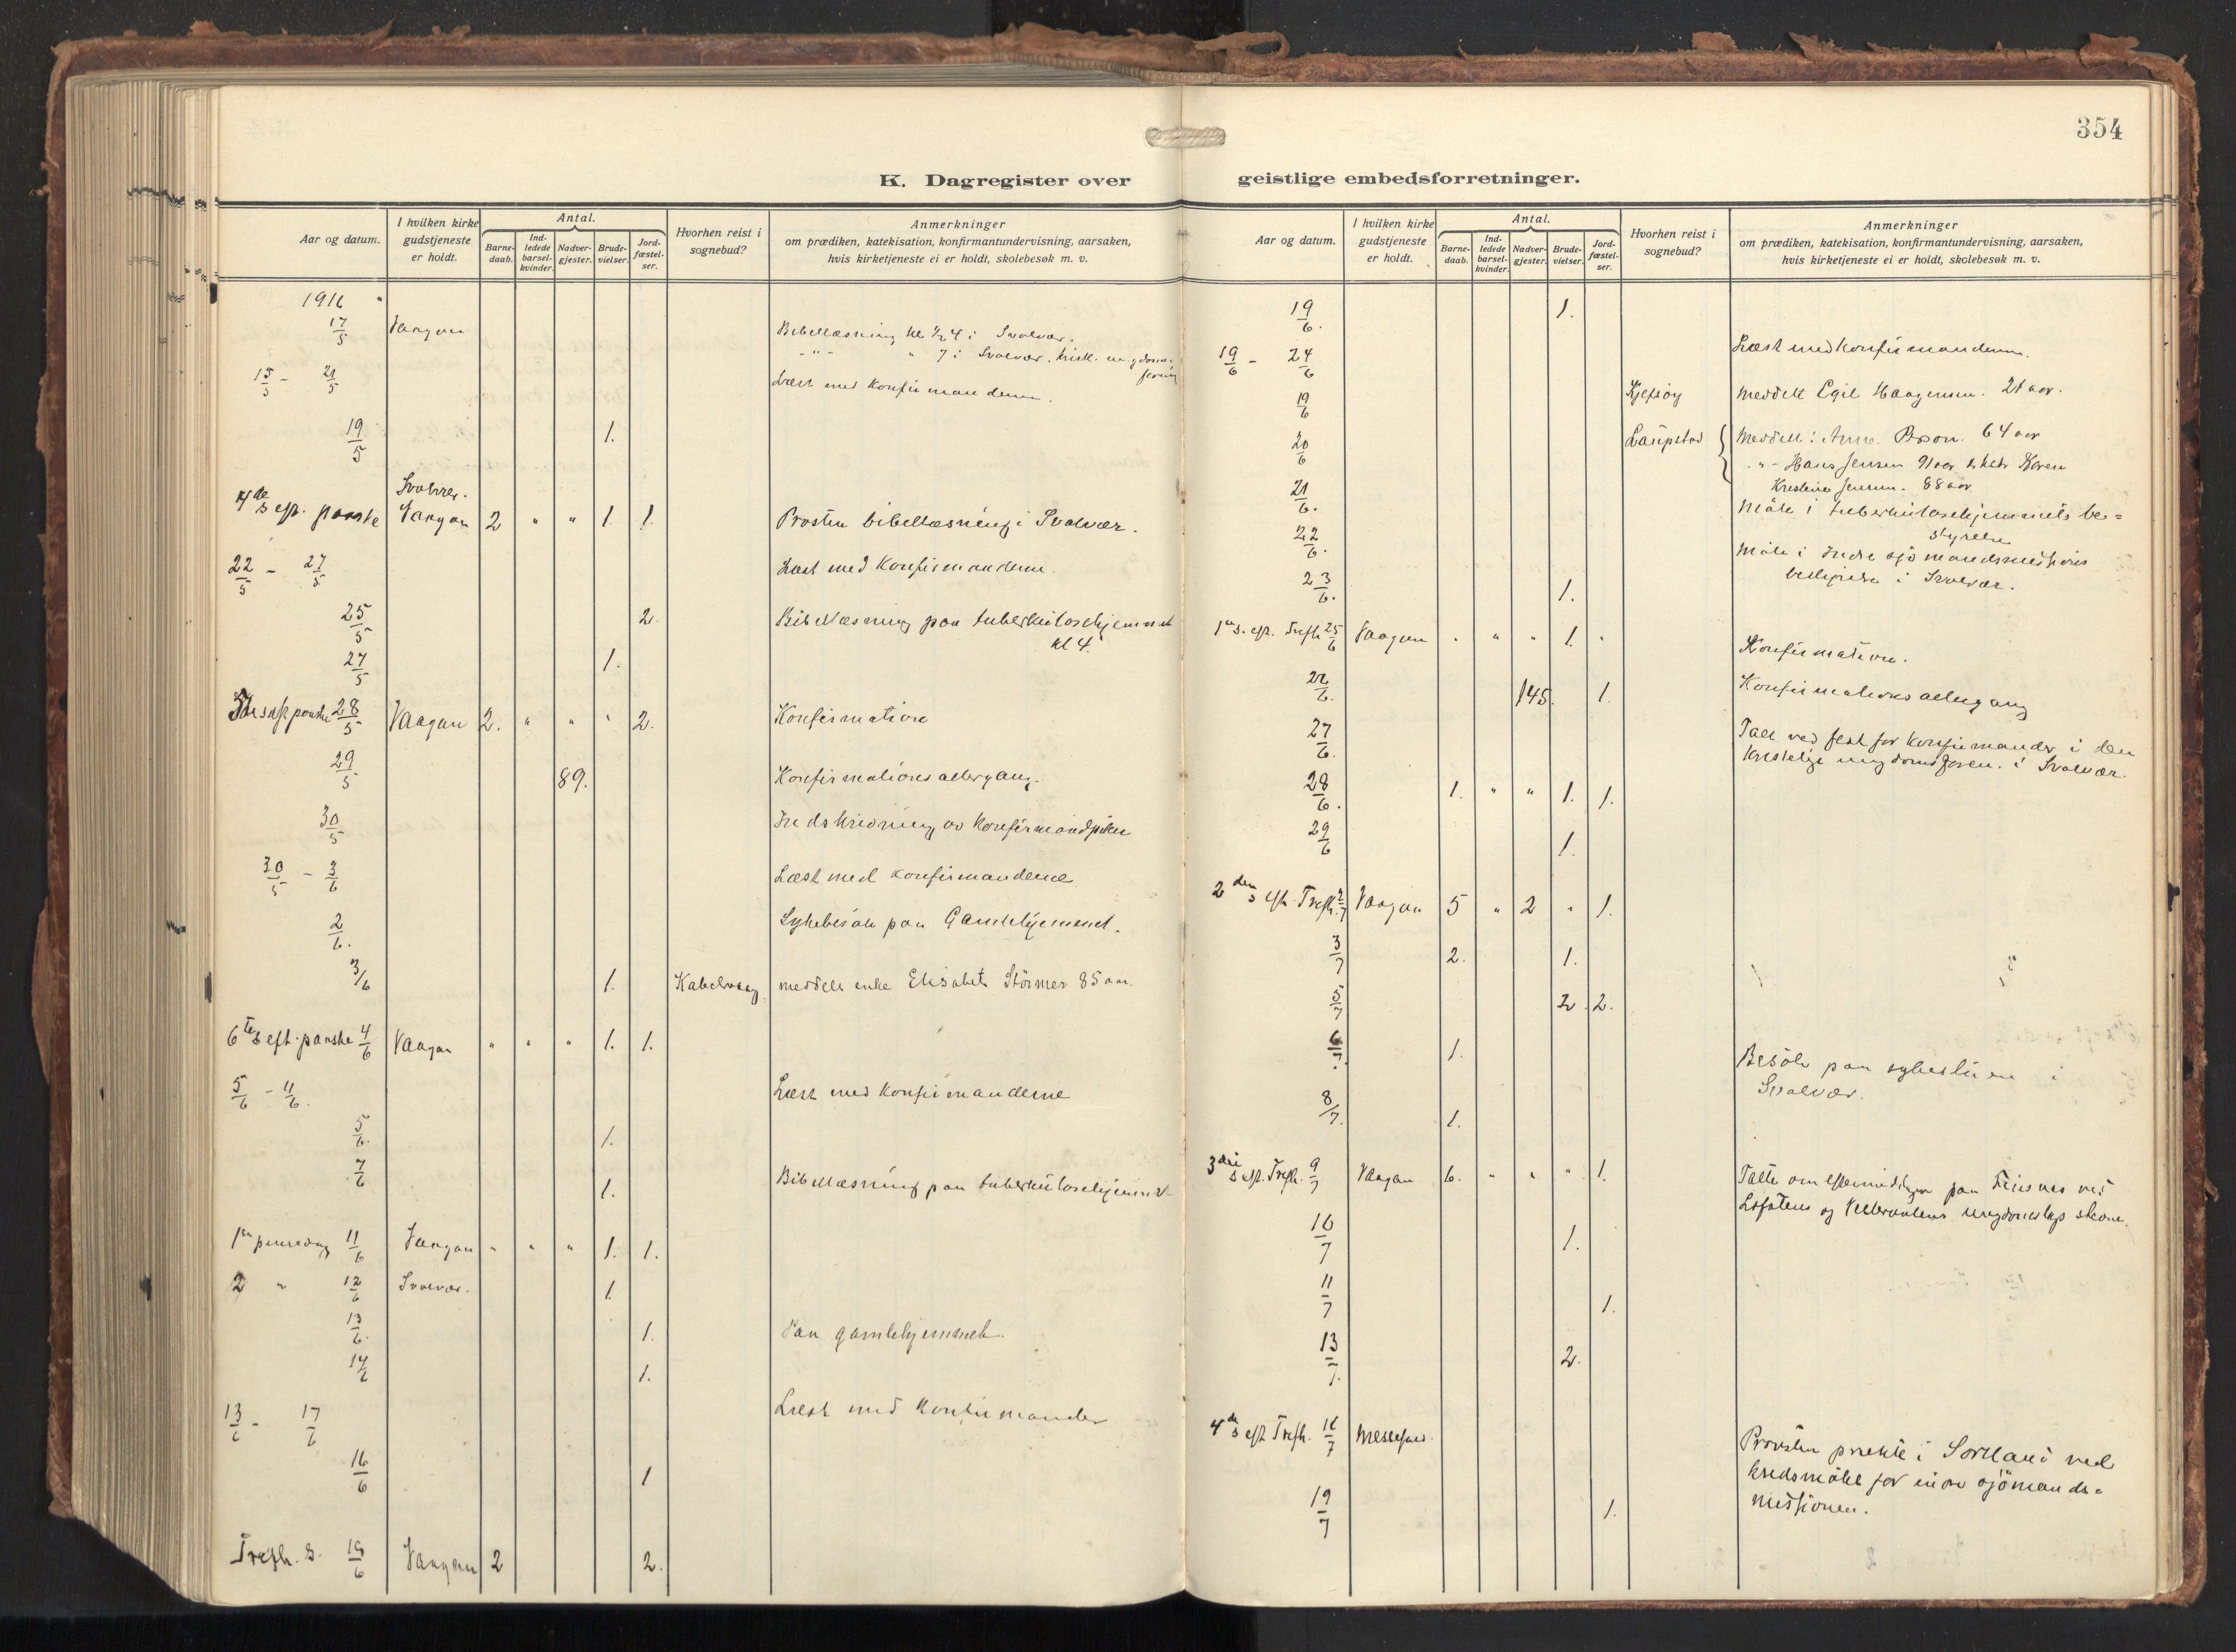 354
K. Dagregister over geistlige embedsforretninger.
Aar og datum.
I hvilken kirke gudstjeneste er holdt.
Antal.
Barne-daab.
Ind-ledede barsel-kvinder.
Nadver-gjester.
Brude-vielser.
Jord-fæstel-ser.
Hvorhen reist i sognebud?
Anmerkninger
om prædiken, katekisation, konfirmantundervisning, aarsaken,
hvis kirketjeneste ei er holdt, skolebesøk m. v.
1916
17/5 Vaagan Bibellæsning kl ½ 4 i Svolvær.
-"- " 7 i Svolvær. kristl. ungdoms-
forening
15/5 - 21/5 Læst med Konfirmanderne.
19/5 1.
Svolvær.
4de s eft. paaske Vaagan 2 " " 1. 1. Prosten bibellæsning i Svolvær.
22/5 - 27/5 Læst med Konfirmanderne.
25/5 2. Bibellæsning paa tuberkulosehjemmet
kl 4.
27/5 1.
5te s eft paaske 28/5 Vaagan 2. " " " 2. Konfirmation
29/5 89. Konfirmationsaltergang.
30/5 Indskrivning av Konfirmandpiker
30/5 - 3/6 Læst med Konfirmanderne
2/6. Sykebesøk paa Gamlehjemmet.
3/6 1. Kabelvaag meddelt enke Elisabet Störmer 85 aar.
6te s eft. paaske 4/6 Vaagan " " " 1. 1.
5/6 - 11/6. Læst med Konfirmanderne
5/6. 1.
7/6 1. Bibellæsning paa tuberkulosehjemmet
1ste pinsedag 11/6 Vaagan " " " 1. 1.
2 " 12/6 Svolvær. 1.
13/6. 1. Paa gamlehjemmet.
14/6 1.
13/6 - 17/6 Læst med Konfirmander
16/6 1
Trefh. s. 18/6 Vaagan 2 2.
Aar og datum.
I hvilken kirke gudstjeneste er holdt.
Antal.
Barne-daab.
Ind-ledede barsel-kvinder.
Nadver-gjester.
Brude-vielser.
Jord-fæstel-ser.
Hvorhen reist i sognebud?
Anmerkninger
om prædiken, katekisation, konfirmantundervisning, aarsaken,
hvis kirketjeneste ei er holdt, skolebesøk m. v.
19/6. 1.
19/6 - 24/6 Læst med Konfirmanderne.
19/6 Meddelt Egil Haagensen. 21 aar.
20/6 Laupstad Meddelt: 64 aar
-"- Hans Jensen 91 aar Karen
Kristine Jensen. 88 aar
21/6. Möte i tuberkulosehjemmets be=
styrelse
22/6. Möte i Indre sjömandsmissions
bestyrelse i Svolvær.
23/6. 1.
1ste s. eft. Trefh 25/6 Vaagan " " " 1. " Konfirmation.
26/6. 145. 1. Konfirmationsaltergang
27/6. Tale ved fest for Konfirmander i den
Kristelige ungdomsforen. i Svolvær.
28/6. 1. " " 1. 1.
29/6 1.
2den s eft. Trefh. 2/7 Vaagan 5 " 2 " 1.
3/7 2. 1.
5/7 2. 2.
6/7. 1. Besök paa sykestuen i
Svolvær.
8/7. 1.
3die s eft. Trefh. 9/7 Vaagan 6. " " " 1. Talte om eftermiddagen paa ved
Lofotens og Vesteraalens ungdomslags stevne.
10/7 1.
11/7 1.
13/7. 2.
4de s eft Trefh. 16/7 Messefald. Prosten præket i Sortland ved
kredsmötet for indre sjömands=
missionen.
19/7 1.